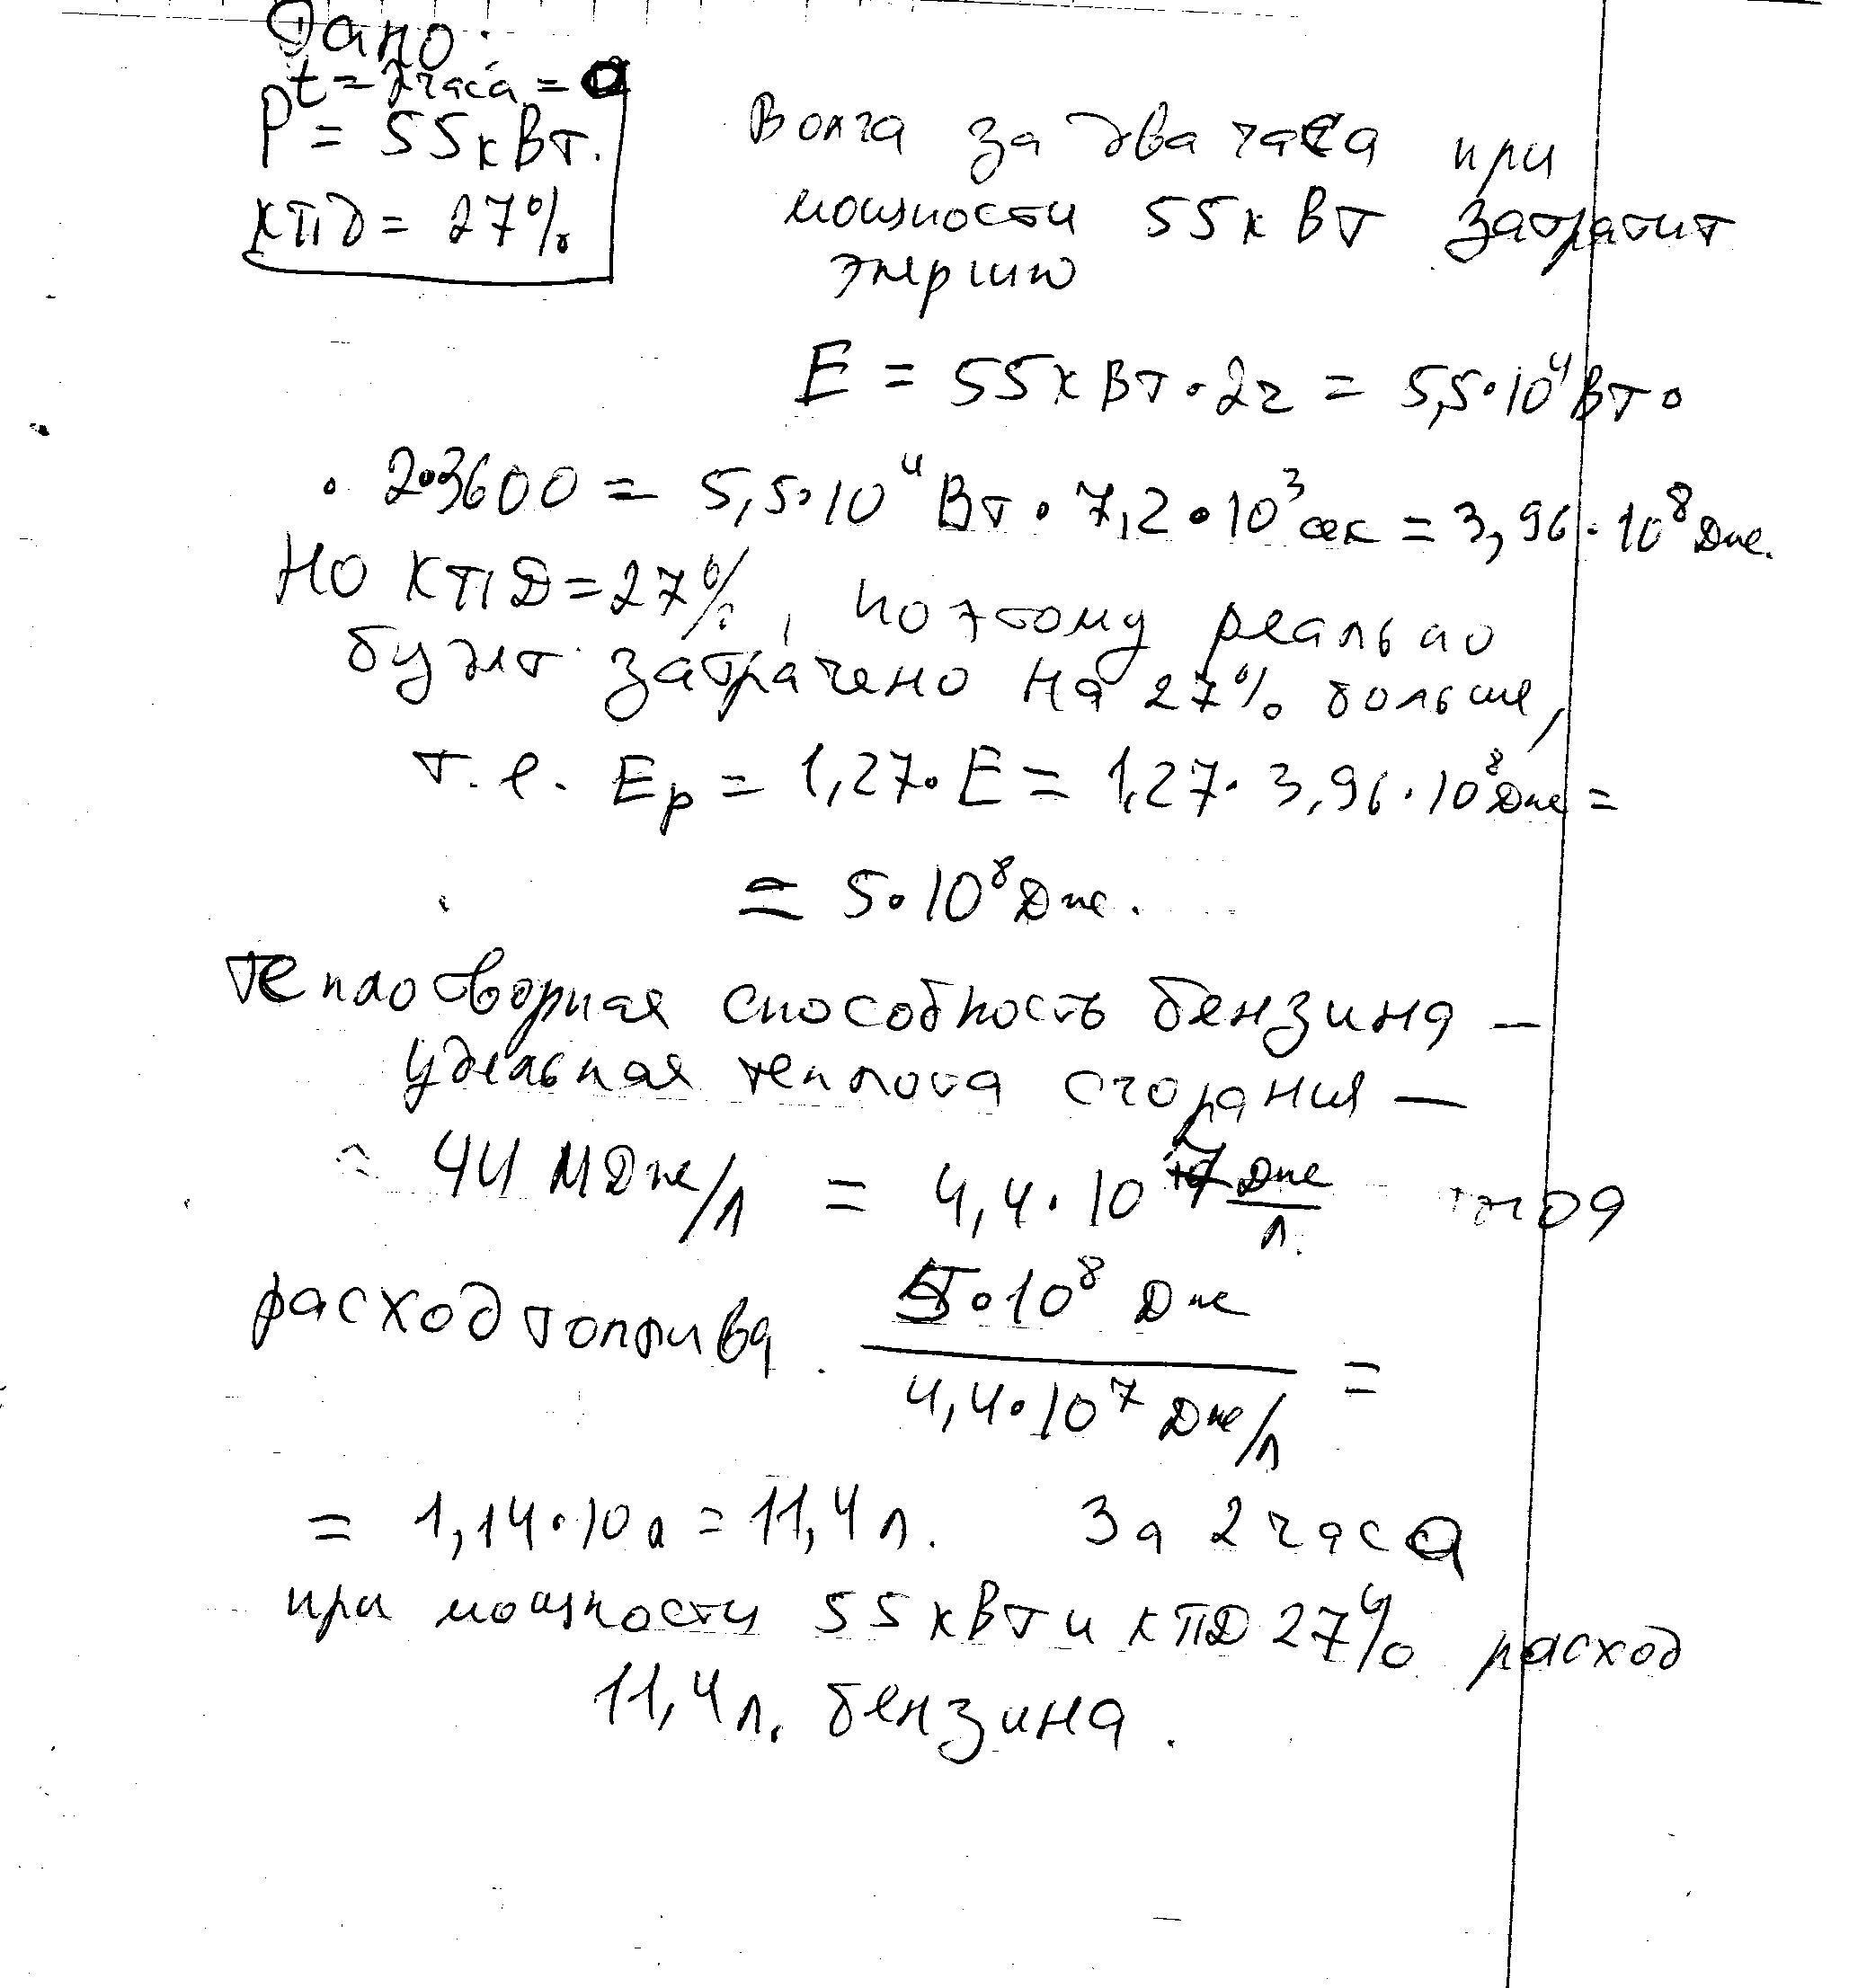 Дано:
t = 2 часа =
P = 55 кВт.
КПД = 27%
Волга за два часа при
мощности 55 кВт затратит
энергию
E = 55 кВт · 2ч = 5,5·10⁴ Вт ·
· 2·3600 = 5,5·10⁴ Вт · 7,2·10³ сек = 3,96·10⁸ Дж.
Но КПД = 27%, поэтому реально
будет затрачено на 27% больше,
т.е. Eр = 1,27·E = 1,27·3,96·10⁸ Дж =
= 5·10⁸ Дж.
Теплотворная способность бензина –
удельная теплота сгорания –
= 44 МДж/л = 4,4·10⁷ Дж/л. тогда
расход топлива 5·10⁸ Дж / 4,4·10⁷ Дж/л =
= 1,14·10 л = 11,4 л. За 2 часа
при мощности 55 кВт и КПД 27% расход
11,4 л. бензина.